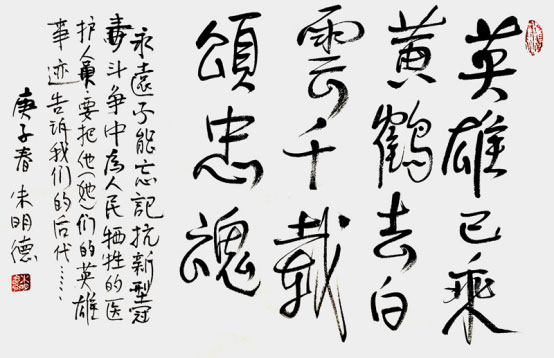 英雄已乘
黄鶴去白
雲千載
頌忠魂
永遠不能忘記抗新型冠
毒斗争中為人民牺牲的医
护人員要把他(她)们的英雄
事迹告訴我们的后代……
庚子春 朱明德